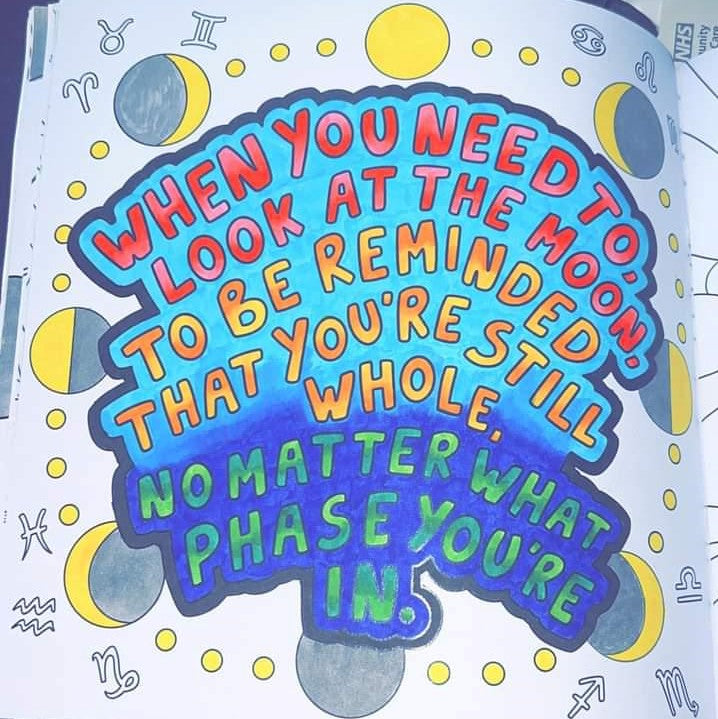 WHEN YOU NEED TO,
LOOK AT THE MOON,
TO BE REMINDED
THAT YOU'RE STILL
WHOLE,
NO MATTER WHAT
PHASE YOU'RE
IN.
NHS